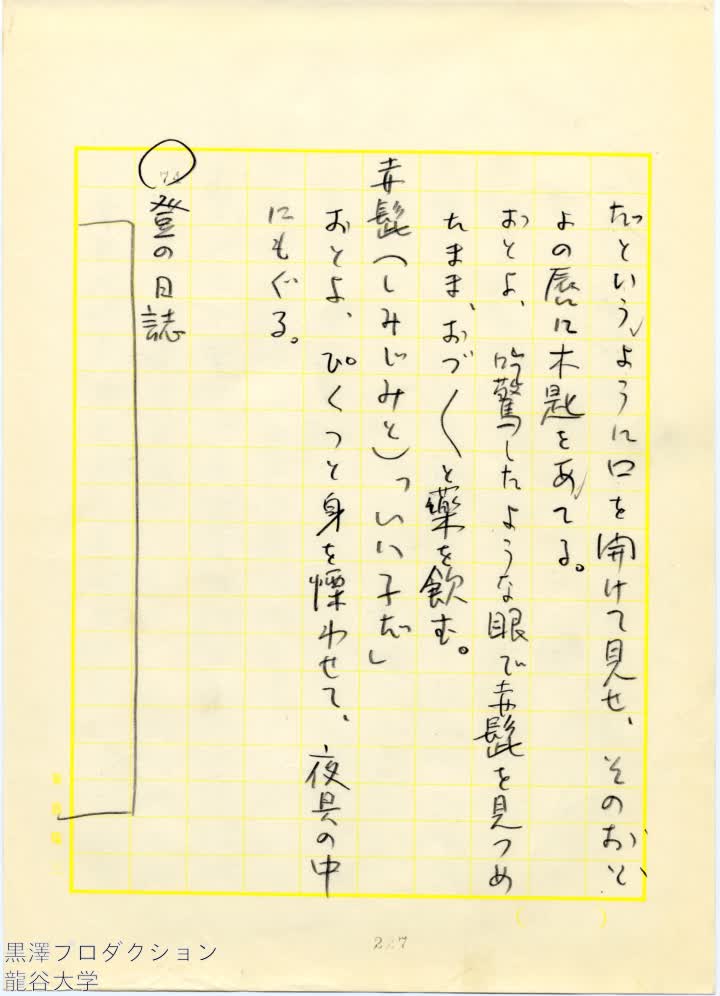 だっというように口を開けて見せ、そのおと
よの唇に木匙をあてる。
おとよ、吃驚したような眼で赤髭を見つめ
たまま、おづ〱と薬を飲む。
赤髭（しみじみと）「いい子だ」
おとよ、ぴくっと身を慄わせて、夜具の中
にもぐる。
登の日誌
227
黒澤プロダクション
龍谷大学